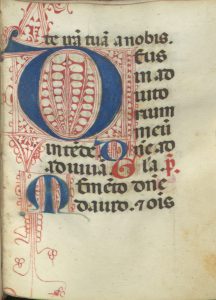 te irã tuã a nobis.
Deus
in ad
iuto
rium
meũ
intẽde Dñe ad
adiuuã Gla. p̃.
Memẽto dñe
dauid. & oĩs